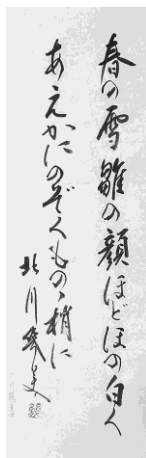 春の雪雛の顔ほどほの白く
あえかにのぞくもの梢に
北川